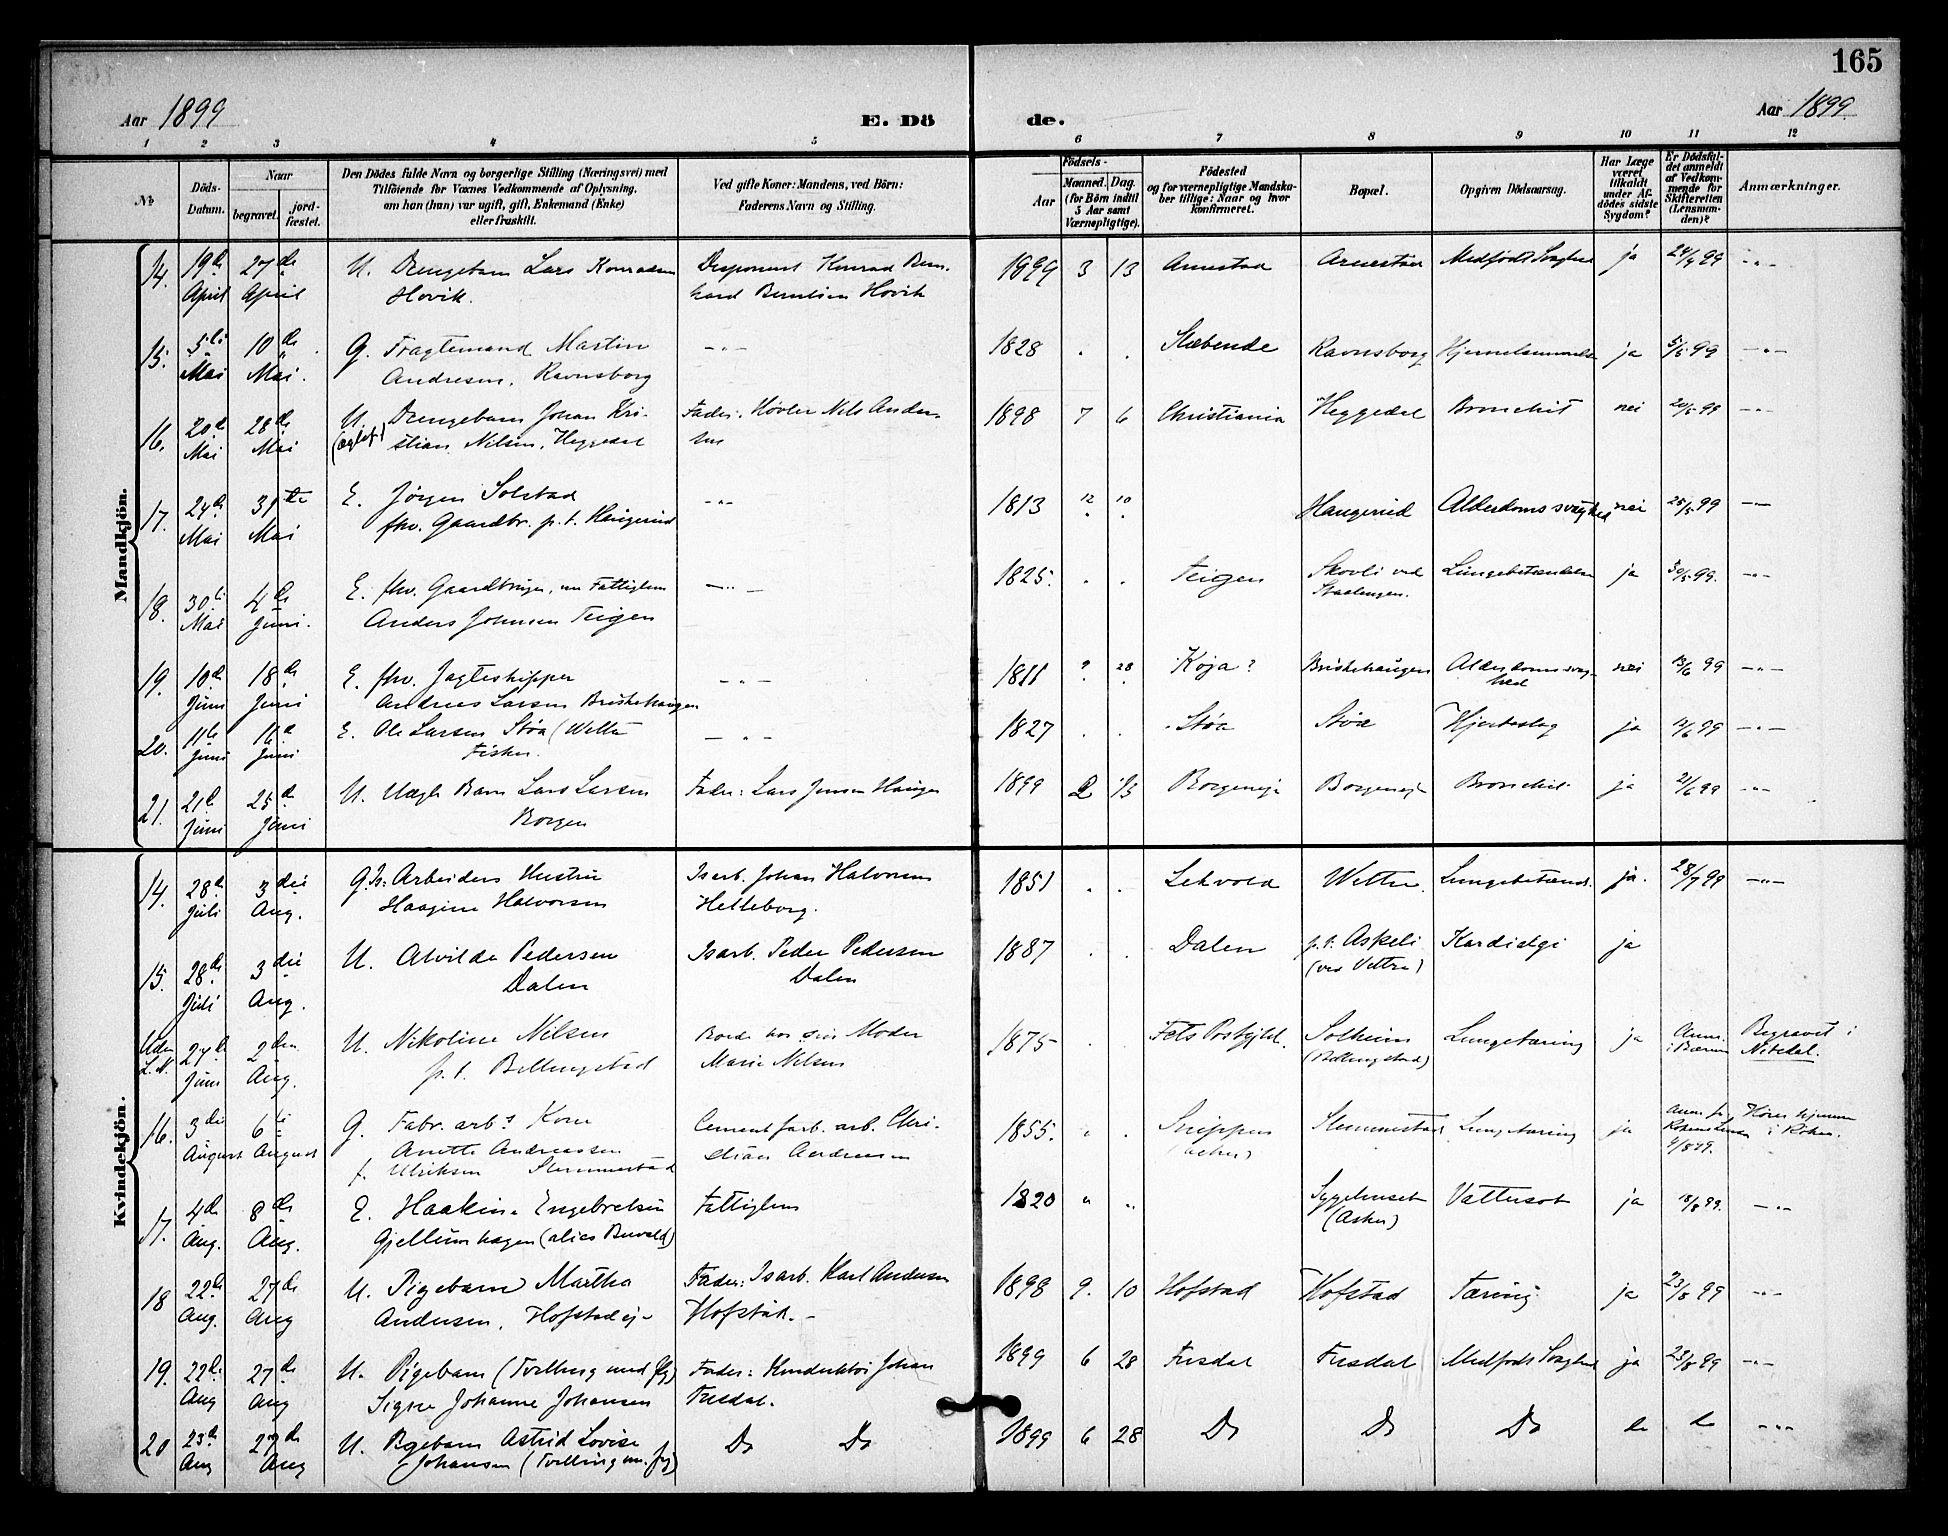 165
Aar 1899
E. Dö
de.
Aar 1899.
1 2 3 4 5 6 7 8 9 10 11 12
No
Döds-
Datum.
Naar
begravet.
jord-
fæstet.
Den Dödes fulde Navn og borgerlige Stilling (Næringsvei) med
Tilföiende for Voxnes Vedkommende af Oplysning,
om han (hun) var ugift, gift, Enkemand (Enke)
eller fraskilt.
Ved gifte Koner: Mandens, ved Börn:
Faderens Navn og Stilling.
Födsels-
Aar
Maaned. Dag.
(for Börn indtil
5 Aar samt
Værnepligtige).
Födested
og for værnepligtige Mandska-
ber tillige: Naar og hvor
konfirmeret.
Bopæl.
Opgiven Dödsaarsag.
Har Læge
været
tilkaldt
under Af-
dödes sidste
Sygdom?
Er Dödsfal-
det anmeldt
af Vedkom-
mende for
Skifteretten
(Lensman-
den)?
Anmærkninger.
Mandkjön.
14. 19de April 27de April U. Drengebarn Lars Konradsen Disponent Konrad Bern- 1899 3 13 Arnestad Arnestad Medfödt Svaghed ja 24/4 99 -"-
Hovik. hard Berntsen Hovik
15. 5te Mai 10de Mai. G. Fragtemand Martin -"- 1828 Slæbende Ravnsborg ja 5/5 99 -"-
Andresen, Ravnsborg
16. 20de Mai 28de Mai U. Drengebarn Johan Kri- Fader: Høvler Nils Ander- 1898 7 6 Christiania Heggedal Bronchit nei 20/5 99 -"-
(ægtef.) stian Nilsen, Heggedal sen
17. 24de Mai 31te Mai E. Jørgen Solstad -"- 1813 12 10 Haugerud Alderdomssvaghed nei 25/5 99 -"-
fhv. Gaardbr. p.t. Haugerud
18. 30te Mai 4de Juni. E. fhv. Gaardbruger, nu Fattiglem -"- 1825. Teigen Skovli ved Lungebetændelse ja 30/5 99. -"-
Anders Johnsen Teigen
19. 10de Juni 18de Juni E. fhv. Jagteskipper -"- 1811 ? 28 Køja? Briskehaugen Alderdomssvag- nei 13/6 99 -"-
Andreas Larsen Briskehaugen hed
20. 11te Juni Juni E. Ole Larsen Støa (Wettre -"- 1827 Støa Støa Hjerteslag ja -"-
Fisker.
21. 21de Juni 25de Juni U. Uægte Barn Lars Larsen Fader: Lars Jensen Hauger 1899 2 13 Borgenejr Borgenejr Bronchit ja 21/6 99 -"-
Borgen
Kvindekjön.
14. 28de Juli 3die Aug. G. Is. Arbeiders Hustru Isarb. Johan Halvorsen 1851 Lekvold Wettre Lungebetænd. ja. 28/7 99 -"-
Haagine Halvorsen Helleborg.
15. 28de Juli 3die Aug. U. Alvilde Pedersen Isarb. Peder Pedersen 1887 Dalen p.t. Askeli Kardialgi ja
Dalen Dalen (ved Vettre)
Uden L.N. 24de Juni 2den Aug. U. Nikoline Nilsen Boede hos sin Moder 1875 Fets Prestgjeld. Solheim Lungetæring ja Anm. Begravet i
p.t. Billingstad Marie Nilsen (Billingstad) i Bærum Nitedal.
16. 3die August 6te August G. Fabr. arb.s Kone Cementfarb. arb. Chri- 1855. Slemmestad Lungetæring ja
Anette Andreassen stian Andresen (Asker) i Røken.
f. Ulriksen Slemmestad
17. 4de Aug. 8de Aug. E. Haakine Engebretsen Fattiglem 1820 " " Sygehuset Vattersot ja -"-
Gjellumhagen (alias Buvold) (Asker)
18 22de Aug. 27de Aug U. Pigebarn Martha Fader: Isarb. Karl Andersen 1898 9. 10 Hofstad Hofstad Tæring ja 23/8 99 -"-
Andersen, Hofstadejr Hofstad.
19. 22de Aug 27de Aug U. Pigebarn (Tvilling med flg) Fader: Konduktør Johan 1899 6 28 Fusdal Fusdal Medfödt Svaghed ja 23/8 99 -"-
Signe Johanne Johansen Fusdal.
20 23de Aug 27de Aug U. Pigebarn Astrid Lovise Do Do 1899 6 28 Do Do Do do do -"-
Johansen (Tvilling m. fg)